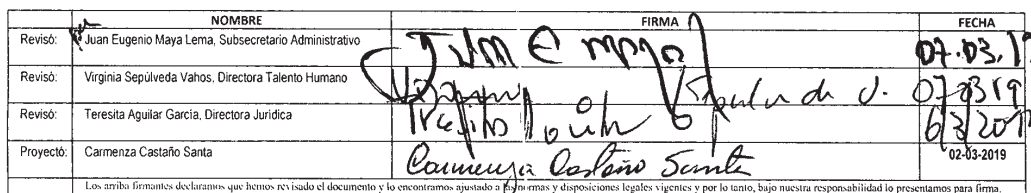 NOMBRE FIRMA FECHA
Revisó: Juan Eugenio Maya Lema, Subsecretario Administrativo Juan E Maya 07.03.19
Revisó: Virginia Sepúlveda Vahos, Directora Talento Humano Virginia Sepulveda V. 070319
Revisó: Teresita Aguilar Garcia, Directora Jurídica Teresita Aguilar 6/3/2019
Proyectó: Carmenza Castaño Santa Carmenza Castaño Santa 02-03-2019
Los arriba firmantes declaramos que hemos revisado el documento y lo encontramos ajustado a las normas y disposiciones legales vigentes y por lo tanto, bajo nuestra responsabilidad lo presentamos para firma.